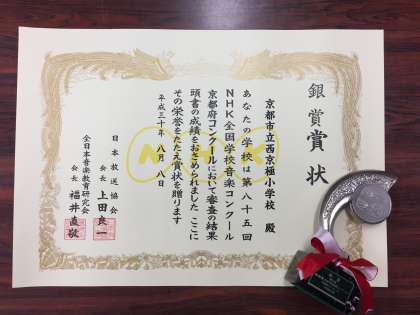 銀賞賞状
京都市立西京極小学校 殿
あなたの学校は第八十五回
NHK全国学校音楽コンクール
京都府コンクールにおいて審査の結果
頭書の成績をおさめられました ここに
その栄誉をたたえ賞状を贈ります
平成三十年 八月 八日
日本放送協会
会長 上田良一
全日本音楽教育研究会
会長 福井直敬
NHK